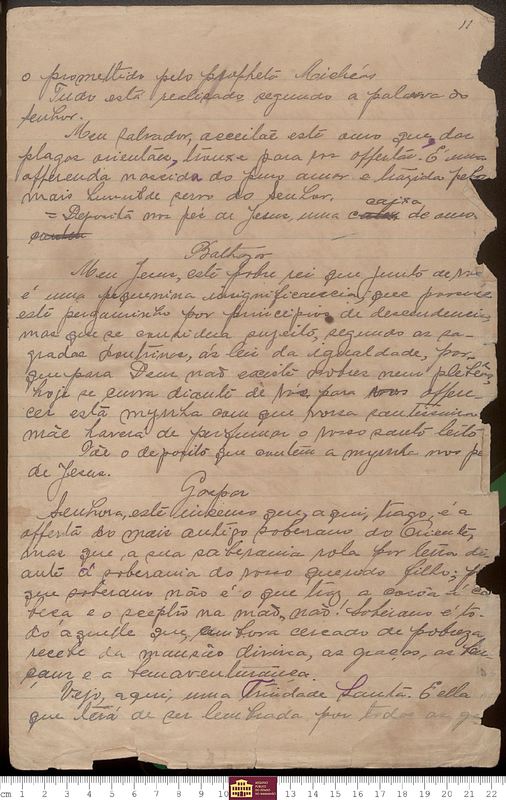 11
o promettido pelo propheta Michéas
Tudo está realisado segundo a palavra do
Senhor.
Meu Salvador, acceitae este ouro que, das
plagas orientaes, trouxe para vos offertar. É uma
offerenda nascida do puro amor e trazida pelo
mais humilde servo do Senhor.
= Deposita nos pés de Jesus, uma caixa de ouro
Balthazar
Meu Jesus, este pobre rei que junto de vós
é uma pequenina insignificancia, que possue
este pergaminho por principios de descendencia,
mas que se considera sujeito, segundo as sa-
gradas doutrinas, ás leis da igualdade, por-
que para Deus não existe nobres nem plebeus,
hoje se curva diante de vós, para vos offere-
cer esta myrrha com que vossa santissima
mãe havera de perfumar o vosso santo leito
Põe o deposito que contem a myrrha nos pés
de Jesus.
Gaspar
Senhora, este incenso que, aqui, trago, é a
offerta do mais antigo soberano do Oriente,
mas que a sua soberania rola por terra di-
ante á soberania do vosso querido filho;
que soberano não é o que traz a corôa á ca
beça e o sceptro na mão, não! Soberano é to-
do aquelle que, embora cercado de pobreza,
recebe da mansão divina, as graças, as
e a bemaventurança.
Vejo, aqui, uma Trindade Santa. E ella
que terá de ser lembrada por todas as
cm 1 2 3 4 5 6 7 8 9 10 13 14 15 16 17 18 19 20 21 22